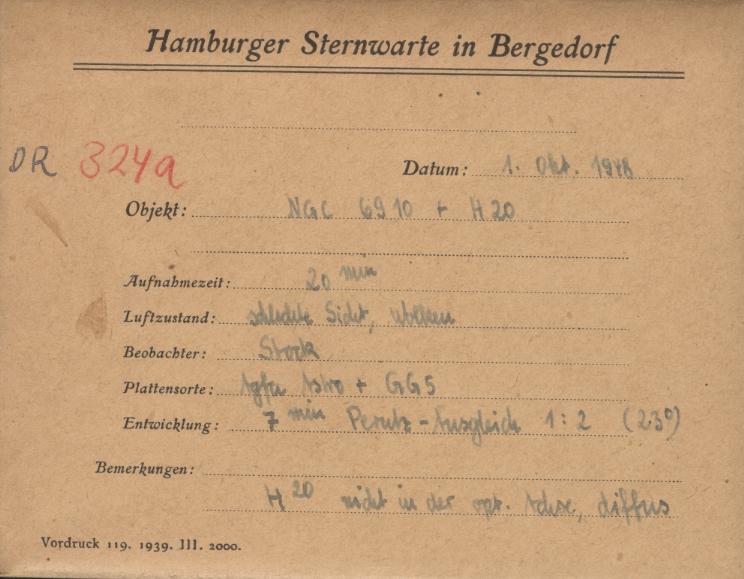 Hamburger Sternwarte in Bergedorf
DR 324a
Datum: 1. Okt. 1948
Objekt: NGC 6910 + H 20
Aufnahmezeit: 20 min
Luftzustand: schlechte Sicht, Wolken
Beobachter: Stock
Plattensorte: Agfa Astro + GG5
Entwicklung: 7 min Perutz-Ausgleich 1:2 (23°)
Bemerkungen:
H 20 nicht in der opt. Achse, diffus
Vordruck 119. 1939. III. 2000.